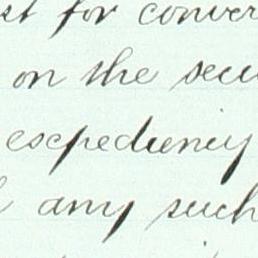 st for conver
on the secu
expediency
any such